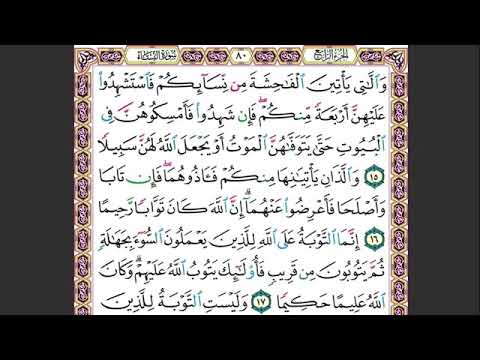 سورة النساء ٨٠ الجزء الرابع
وَالَّٰتِي يَأْتِينَ الْفَاحِشَةَ مِن نِّسَائِكُمْ فَاسْتَشْهِدُوا
عَلَيْهِنَّ أَرْبَعَةً مِّنكُمْ ۖ فَإِن شَهِدُوا فَأَمْسِكُوهُنَّ فِي
الْبُيُوتِ حَتَّىٰ يَتَوَفَّاهُنَّ الْمَوْتُ أَوْ يَجْعَلَ اللَّهُ لَهُنَّ سَبِيلًا
١٥ وَاللَّذَانِ يَأْتِيَانِهَا مِنكُمْ فَـَٔاذُوهُمَا ۖ فَإِن تَابَا
وَأَصْلَحَا فَأَعْرِضُوا عَنْهُمَا ۗ إِنَّ اللَّهَ كَانَ تَوَّابًا رَّحِيمًا
١٦ إِنَّمَا التَّوْبَةُ عَلَى اللَّهِ لِلَّذِينَ يَعْمَلُونَ السُّوءَ بِجَهَالَةٍ
ثُمَّ يَتُوبُونَ مِن قَرِيبٍ فَأُولَٰئِكَ يَتُوبُ اللَّهُ عَلَيْهِمْ ۗ وَكَانَ
اللَّهُ عَلِيمًا حَكِيمًا ١٧ وَلَيْسَتِ التَّوْبَةُ لِلَّذِينَ